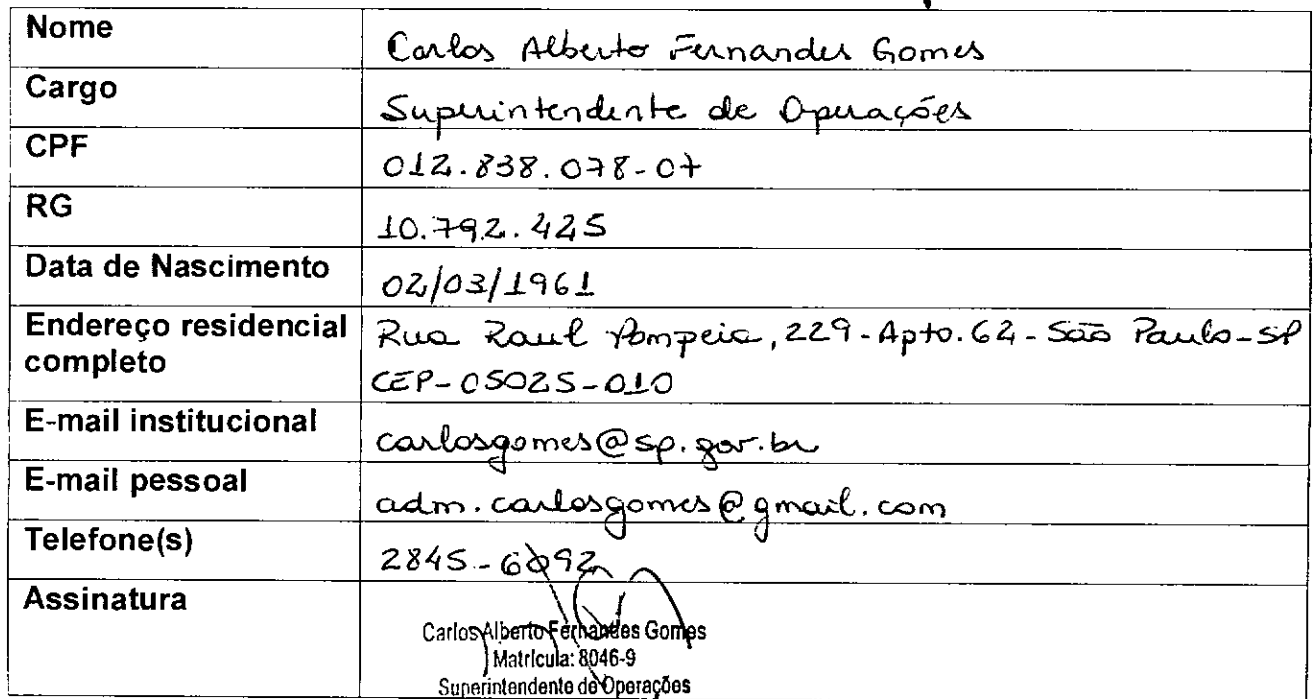 Nome Carlos Alberto Fernandes Gomes
Cargo Superintendente de Operações
CPF 012.838.078-07
RG 10.792.425
Data de Nascimento 02/03/1961
Endereço residencial completo Rua Raul Pompeia, 229 - Apto. 62 - São Paulo - SP
CEP - 05025-010
E-mail institucional carlosgomes@sp.gov.br
E-mail pessoal adm.carlosgomes@gmail.com
Telefone(s) 2845-6092
Assinatura
Carlos Alberto Fernandes Gomes
Matrícula: 8046-9
Superintendente de Operações